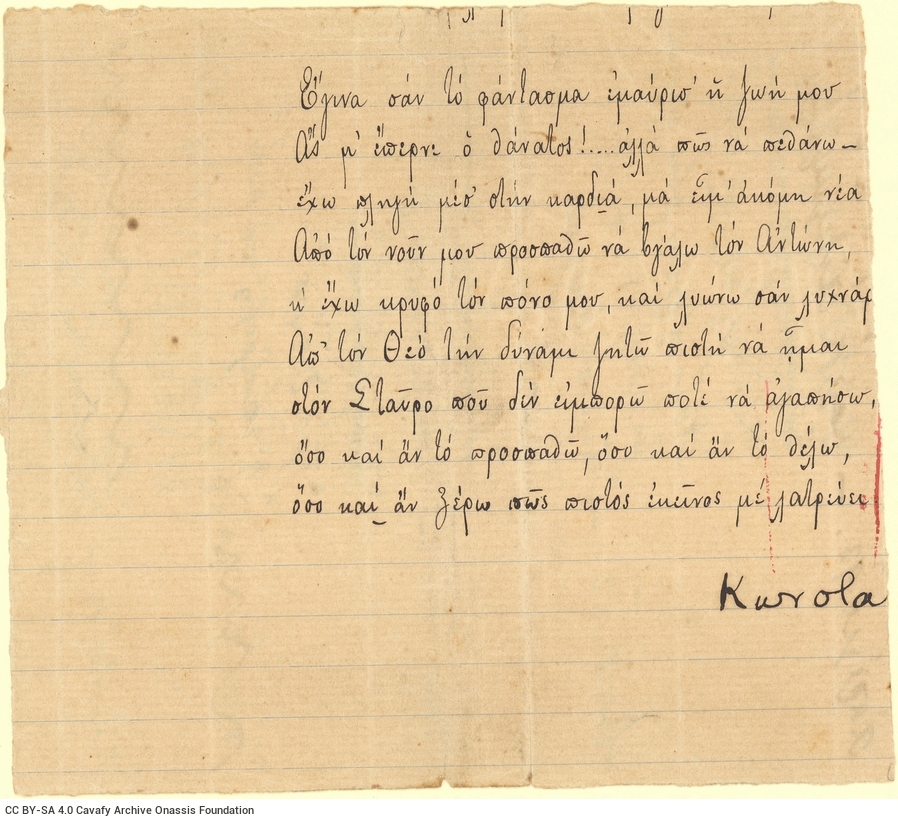 Ἔγινα σάν τό φάντασμα ἐμαύρισ' ἡ ζωή μου
Ἄς μ' ἔπερνε ὁ θάνατος!.....ἀλλά πῶς νά πεθάνω –
ἔχω πληγή μέσ' στήν καρδιά, μά εἶμ' ἀκόμη νέα
Ἀπό τόν νοῦν μου προσπαθῶ νά βγάλω τόν Ἀντώνη,
κ' ἔχω κρυφό τόν πόνο μου, καί λυώνω σάν λυχνάρ
Ἀπ' τόν Θεό τήν δύναμι ζητῶ πιστή νά ᾖμαι
στόν Σταῦρο ποῦ δέν εἰμπορῶ ποτέ νά ἀγαπήσω,
ὅσο καί ἄν τό προσπαθῶ, ὅσο καί ἄν τό θέλω,
ὅσο καί ἄν ξέρω πῶς πιστός ἐκεῖνος μέ λατρεύει
Κωνστα
CC BY-SA 4.0 Cavafy Archive Onassis Foundation